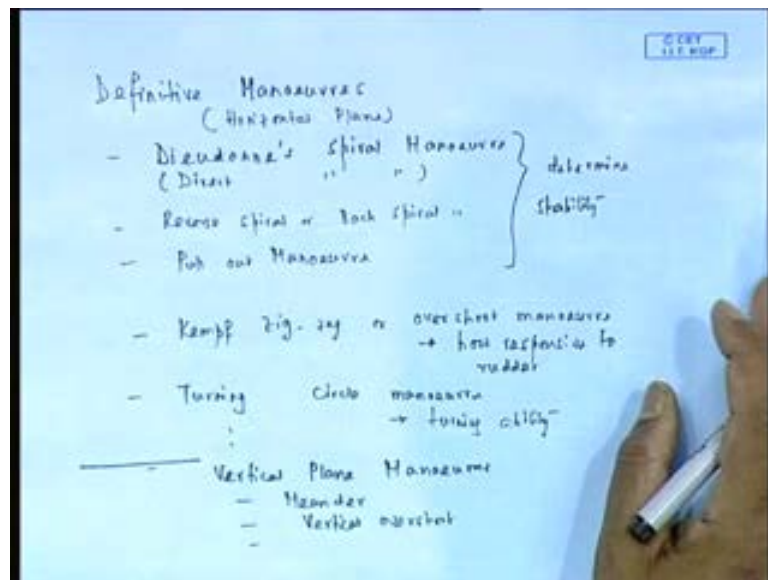 © CET
I.I.T. KGP
Definitive Manoeuvres
(Horizontal Plane)
- Dieudonne's Spiral Manoeuvre
(Direct " ")
- Reverse Spiral or Back Spiral "
- Pull out Manoeuvre
determine
stability
- Kempf zig-zag or overshoot manoeuvre
→ how responsive to
rudder
- Turning Circle manoeuvre
→ turning ability
Vertical Plane Manoeuvres
- Meander
- Vertical overshoot
-